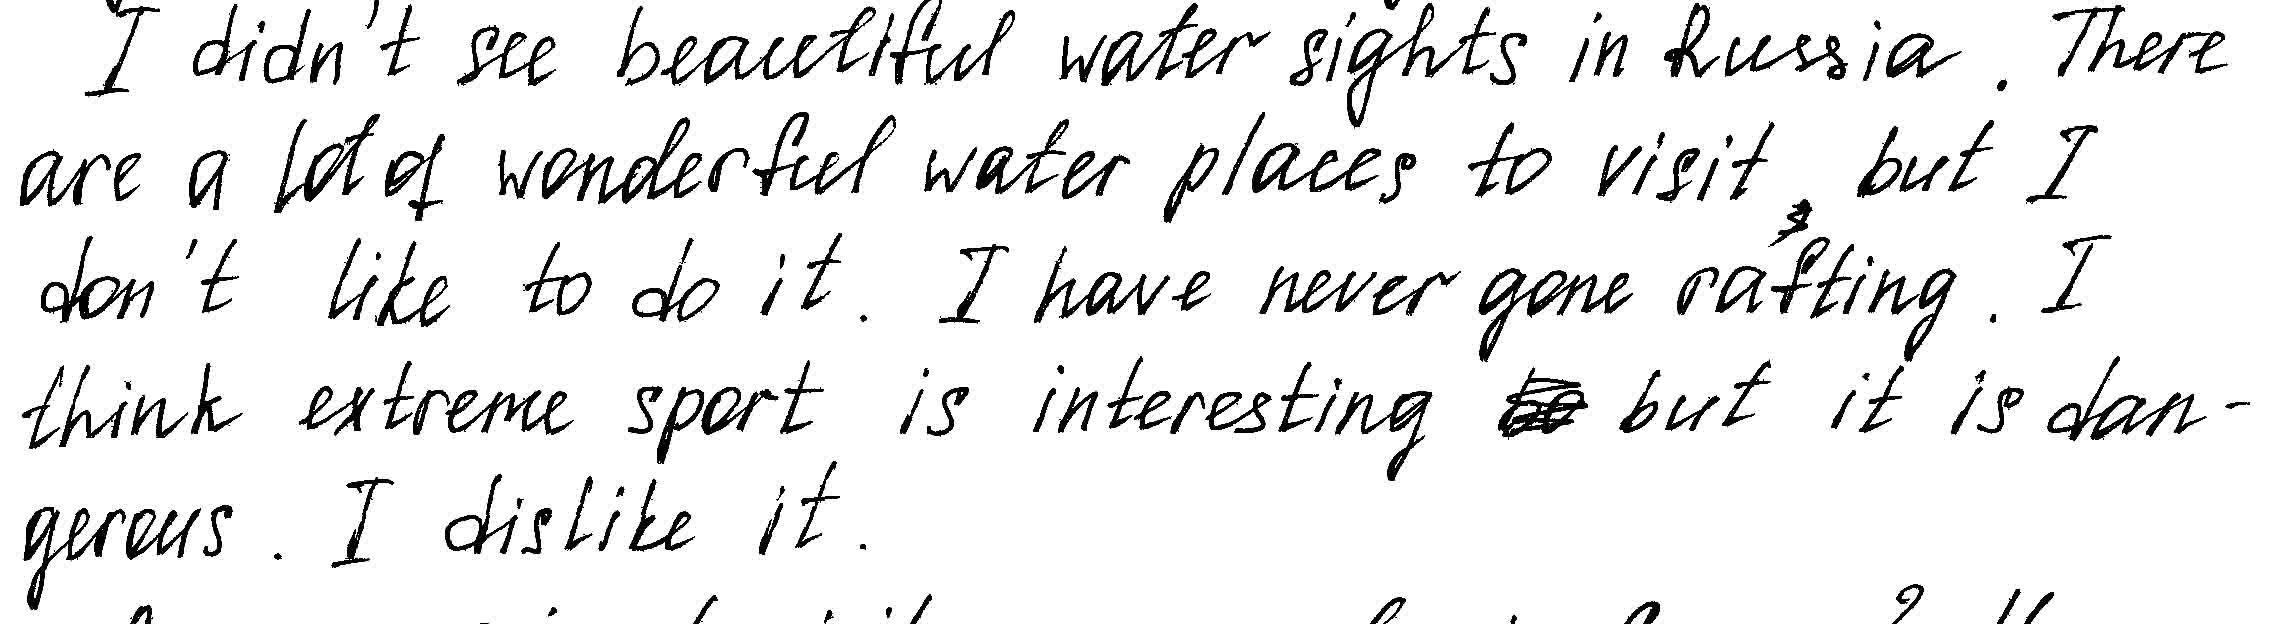 I didn't see beautiful water sights in Russia. There
are a lot of wonderful water places to visit, but I
don't like to do it. I have never gone rafting. I
think extreme sport is interesting but it is dan-
gerous. I dislike it.